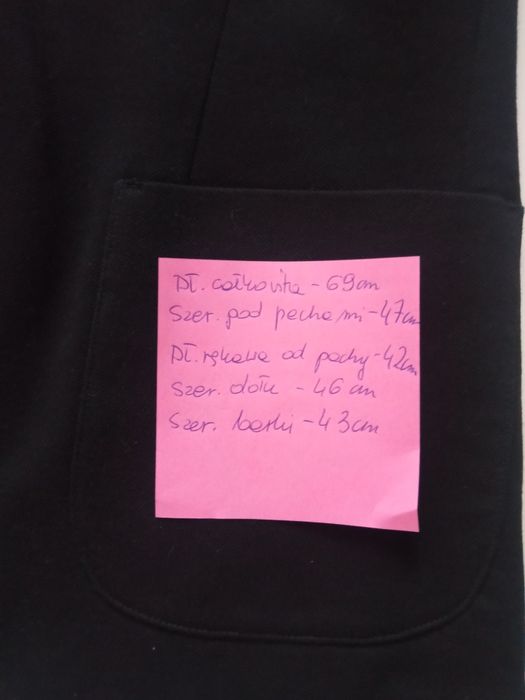 Dł. całkowita - 69cm
Szer. pod pachami - 47cm
Dł. rękawa od pachy - 42cm
Szer. dołu - 46 cm
Szer. barki - 43cm